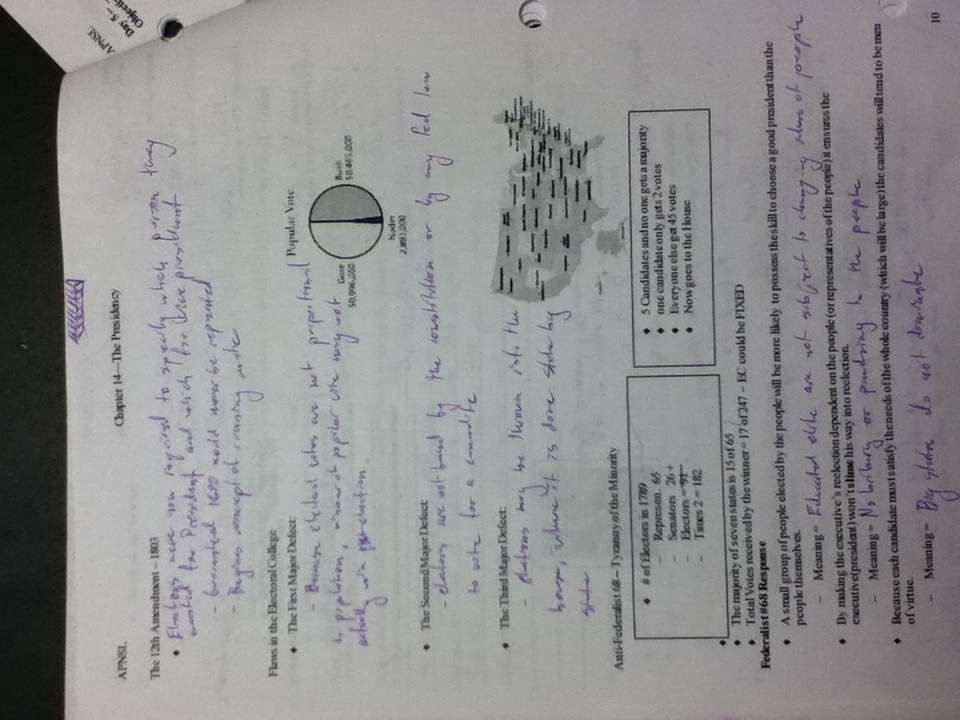 APNSL
Chapter 14—The Presidency
APNSL
Day 5 –
The 12th Amendment – 1803
Electors were now required to specify which person they
wanted for President and which for vice president
- Guaranteed 1800 would never be repeated
- Begins concept of running mate
Flaws in the Electoral College
The First Major Defect:
- Because electoral votes are not proportional
to population, winner of popular vote may not
actually win election.
Popular Vote
Gore
50,996,000
Bush
50,465,000
Nader
The Second Major Defect:
- electors are not bound by the constitution or by any Fed law
to vote for a
The Third Major Defect:
- elections may be thrown into the
house, where it is done state by
state
Anti-Federalist 68 – Tyranny of the Minority
# of Electors in 1789
– Represen. 65
– Senators 26 +
– Electors = 91
– Times 2 = 182
5 Candidates and no one gets a majority
one candidate only gets 2 votes
Everyone else get 45 votes
Now goes to the House
The majority of seven states is 15 of 65
Total Votes received by the winner = 17 of 247 – EC could be FIXED
Federalist #68 Response
A small group of people elected by the people will be more likely to possess the skill to choose a good president than the
people themselves.
– Meaning = Educated elite are not subject to changing of people
By making the executive's reelection dependent on the people (or representatives of the people) it ensures the
executive (president) won't slime his way into reelection.
– Meaning = No bribery or to the people
Because each candidate must satisfy the needs of the whole country (which will be large) the candidates will tend to be men
of virtue.
– Meaning = Big states do not dominate
10